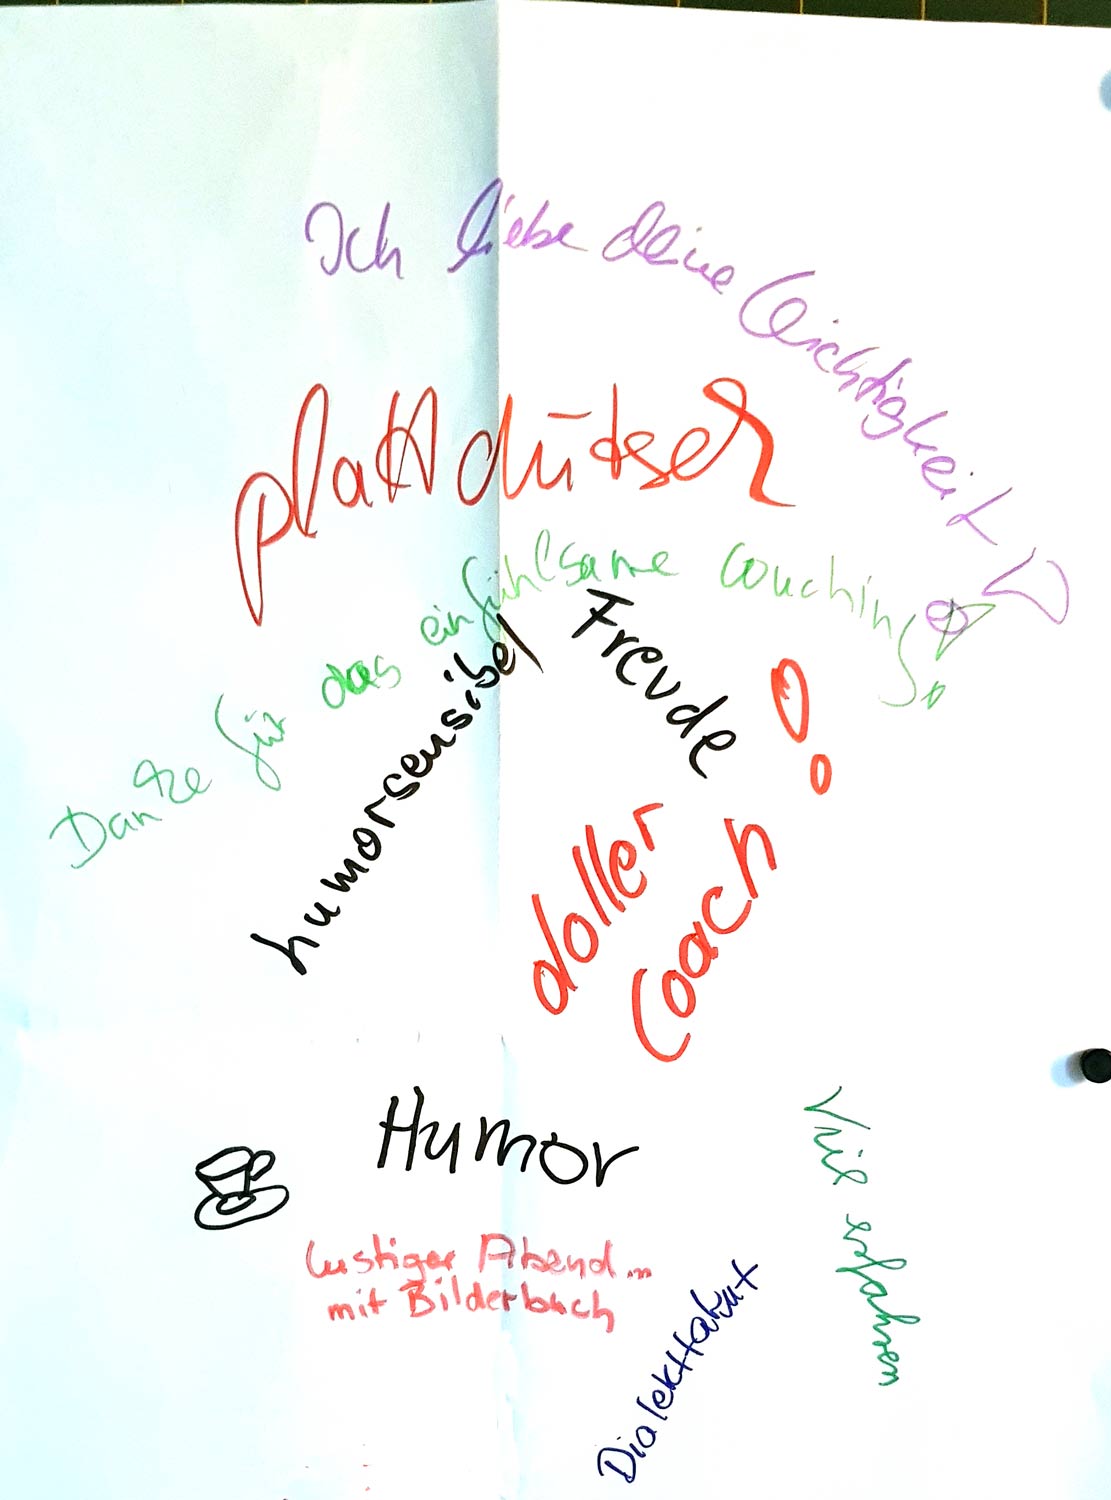 Ich liebe deine Leichtigkeit
plattdütsch
Danke für das einfühlsame Couching!
humorsensibel
Freude
doller
Coach!
Humor
lustiger Abend...
mit Bilderbuch
Viel erfahren